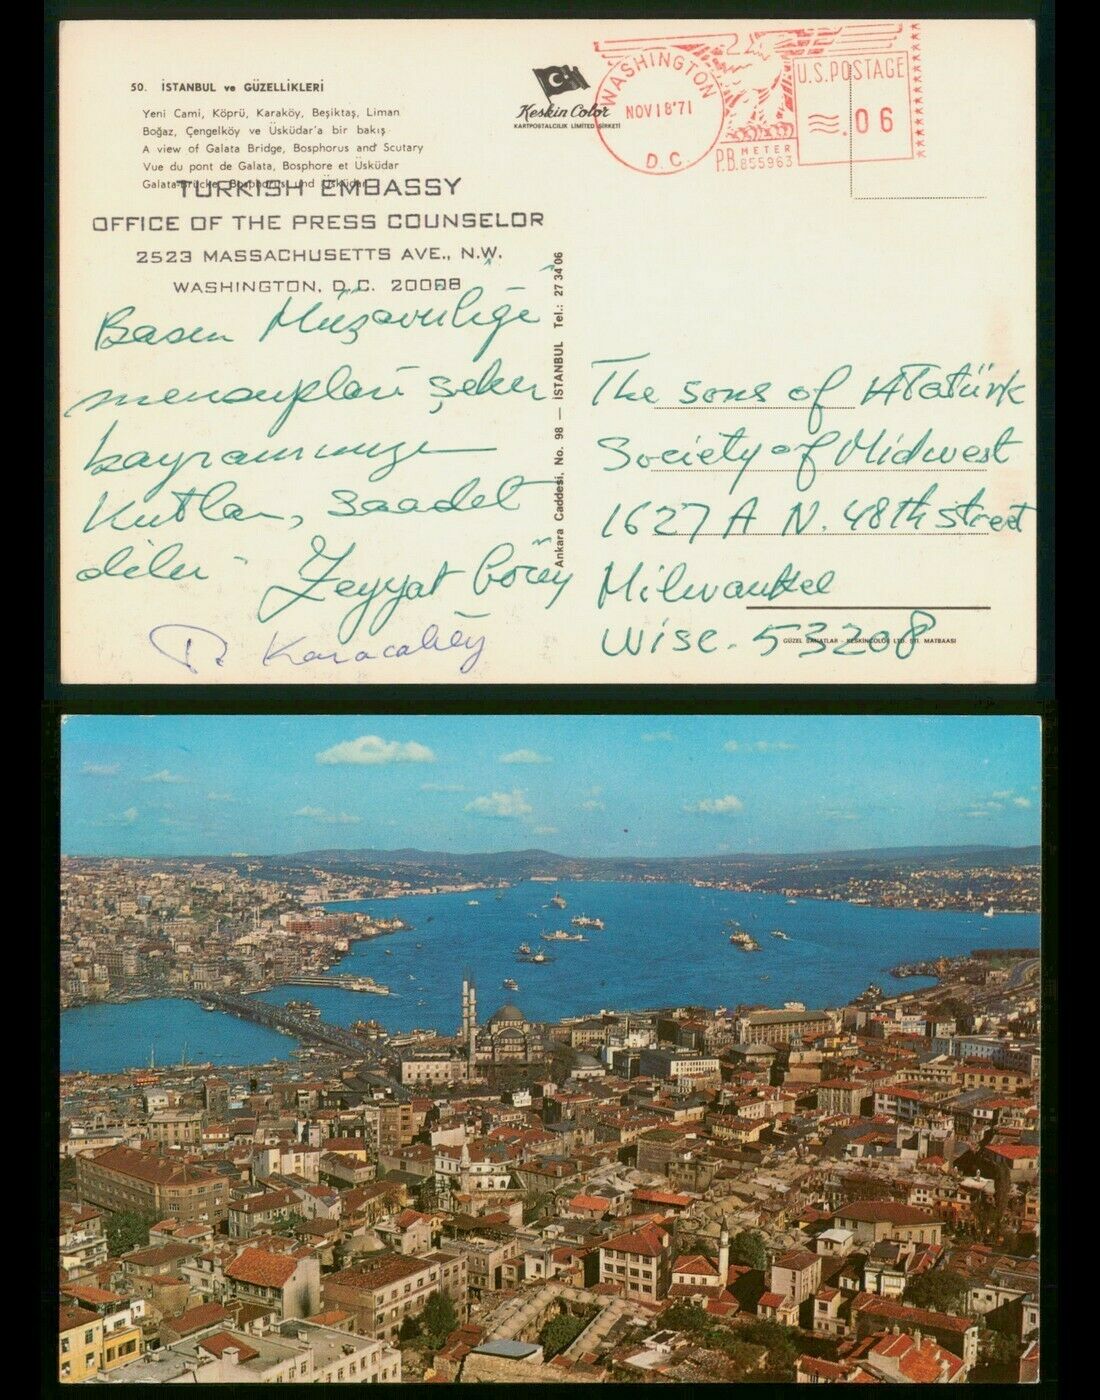 50. İSTANBUL ve GÜZELLİKLERİ
Yeni Cami, Köprü, Karaköy, Beşiktaş, Liman
Boğaz, Çengelköy ve Üsküdar'a bir bakış
A view of Galata Bridge, Bosphorus and Scutary
Vue du pont de Galata, Bosphore et Üsküdar
Galata-Brücke, Bosphorus und Üsküdar
Keskin Color
KARTPOSTALCILIK LIMITED ŞİRKETİ
WASHINGTON
NOV 18 '71
D.C.
U.S. POSTAGE
.06
P.B. METER
855963
TURKISH EMBASSY
OFFICE OF THE PRESS COUNSELOR
2523 MASSACHUSETTS AVE., N.W.
WASHINGTON, D.C. 20008
Basın Müşavirliği
mensupları şeker
bayramınızı
Kutlar, saadet
diler
Zeyyat Gören
Karacabey
Ankara Caddesi, No. 98 — İSTANBUL Tel.: 27 34 06
The sons of Atatürk
Society of Midwest
1627 A N. 48th street
Milwaukee
Wisc. 53208
GÜZEL SANATLAR - KESKİNCOLOR LTD. ŞTİ. MATBAASI